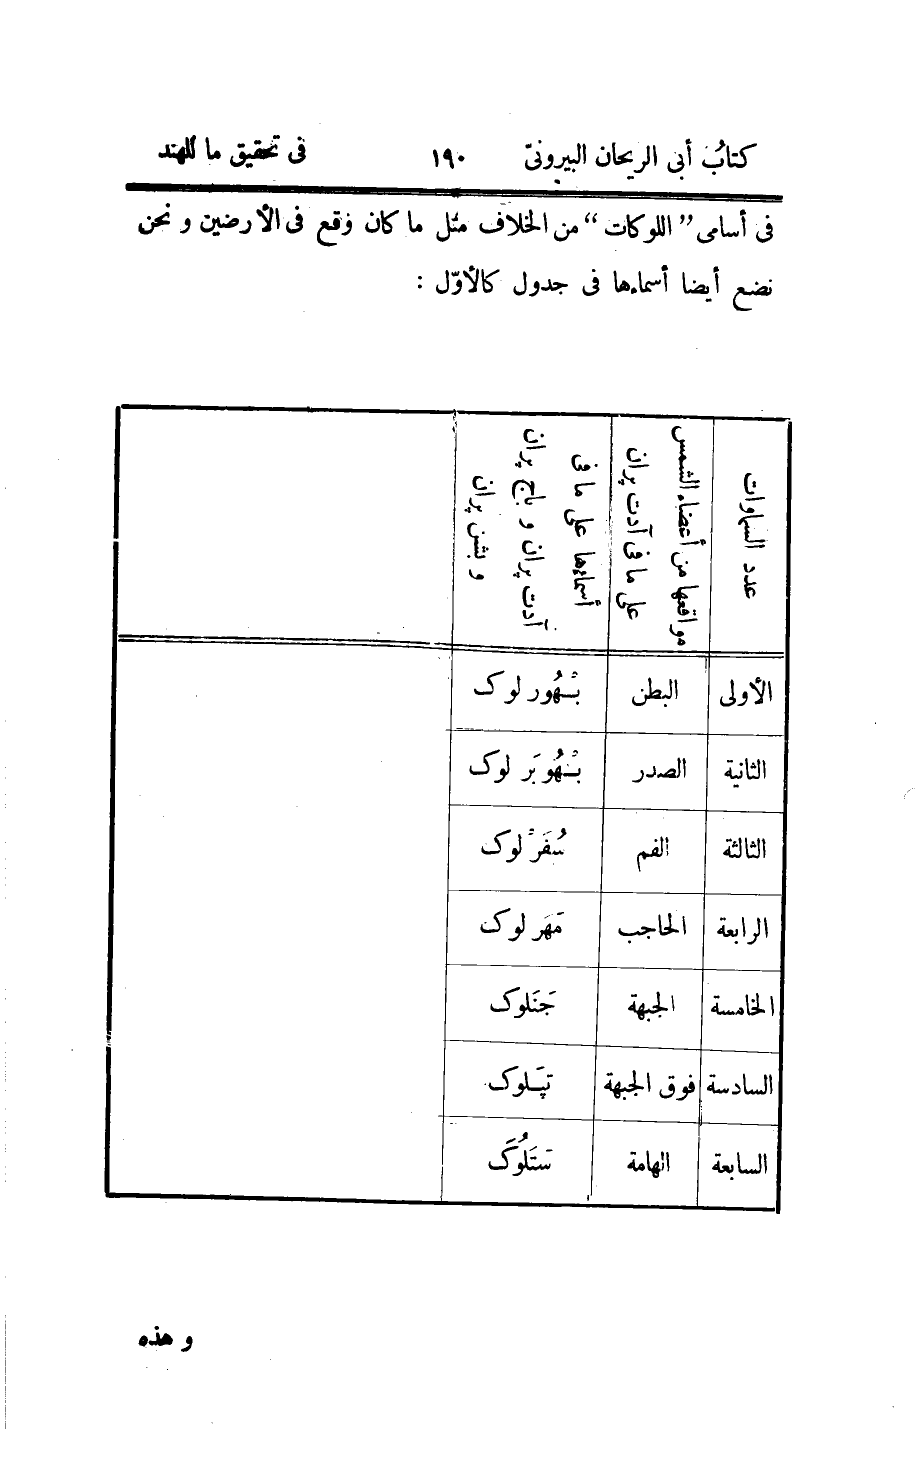 كتاب أبى الريحان البيرونىّ ١٩٠ فى تحقيق ما للهند
فى أسامى ”اللوكات“ من الخلاف مثل ما كان وقع فى الأرضين و نحن
نضع أيضا أسماءها فى جدول كالأوّل :
عدد السماوات
مواقعها من أعضاء الشمس
على ما فى آدت پران
أسماءها على ما فى
آدت پران و باج پران
و بشن پران
الأولى البطن بْهُور لوک
الثانية الصدر بْهُوبَر لوک
الثالثة الفم سُفَرْ لوک
الرابعة الحاجب مَهَر لوک
الخامسة الجبهة جَنَلوک
السادسة فوق الجبهة تپَلوک
السابعة الهامة ستَلُوک
و هذه